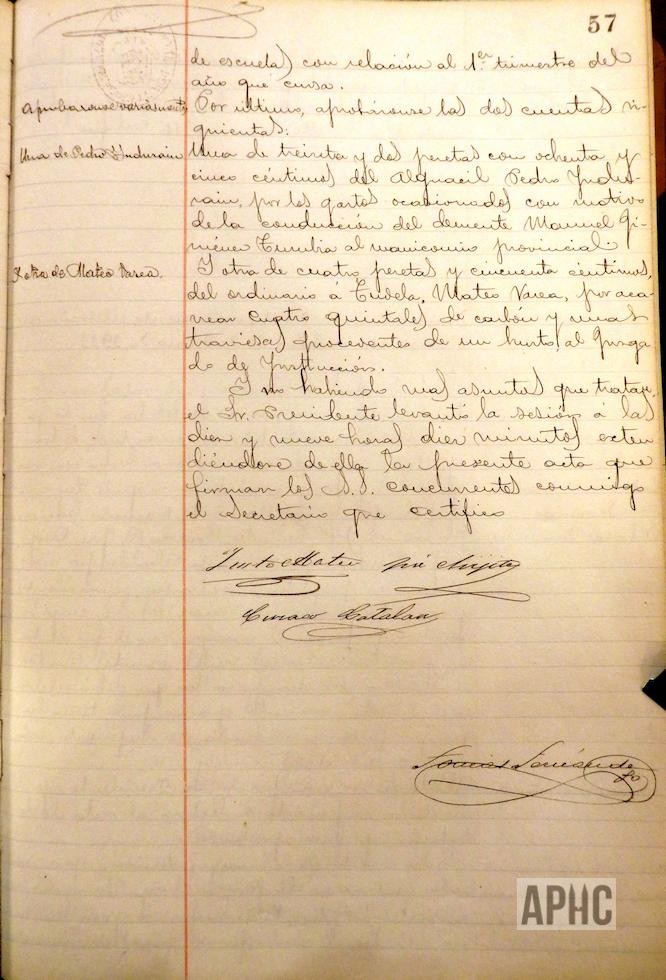 57
de escuela) con relación al 1.er trimestre del
año que cursa.
Aprobáronse varias cuentas
Por último, aprobáronse las dos cuentas si-
guientas:
Una de Pedro Yndurain
Una de treinta y dos pesetas con ochenta y
cinco céntimos del Alguacil Pedro Yndu-
rain, por los gastos ocasionados con motivo
de la conducción del demente Manuel Gi-
ménez al manicomio provincial.
Y otra de Mateo Varea.
Y otra de cuatro pesetas y cincuenta céntimos,
del ordinario á Tudela, Mateo Varea, por aca-
rrear cuatro quintales de carbón y unas
traviesas procedentes de un hurto, al Juzga-
do de Ynstrucción.
Y no habiendo mas asuntos que tratarse,
el Sr. Presidente levantó la sesión á las
diez y nueve horas diez minutos exten
diéndose de ella la presente acta que
firman los S.S. concurrentes conmigo
el secretario que certifico
Justo Mateo
Ciriaco Catalan
Tomas Fernández
APHC